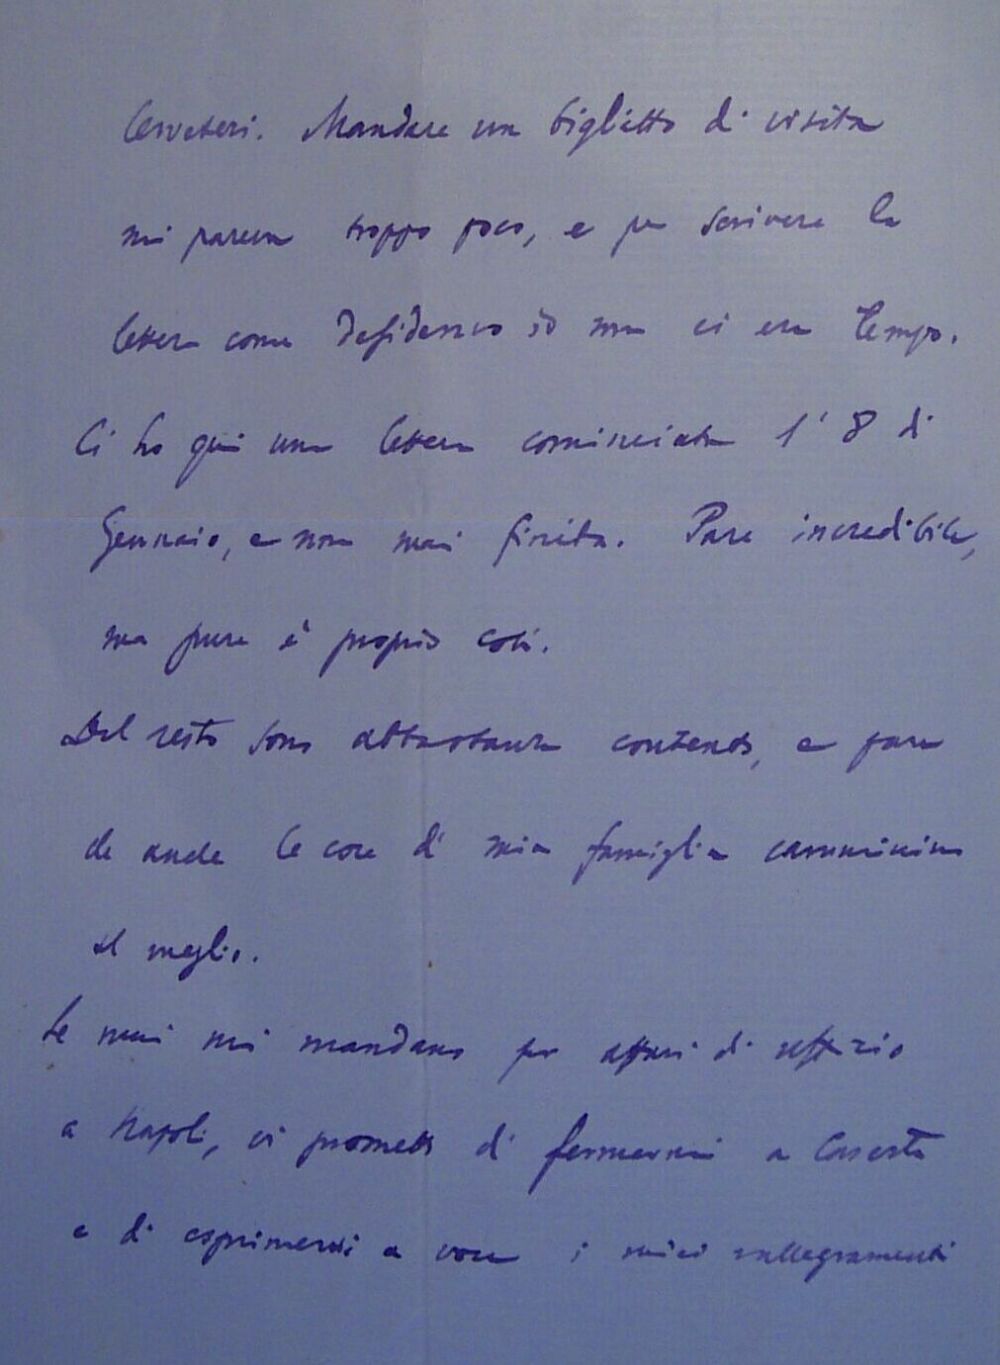 Cerveteri. Mandare un biglietto di visita
mi pareva troppo poco, e per scrivere la
lettera come desideravo io non ci era tempo.
Ci ho qui una lettera cominciata l'8 di
Gennaio, e non mai finita. Pare incredibile,
ma pure è proprio così.
Del resto sono abbastanza contento, e pare
che anche le cose di mia famiglia camminino
al meglio.
Se mai mi mandano per affari di uffizio
a Napoli, vi prometto di fermarmi a Caserta
e di esprimervi a voce i miei rallegramenti